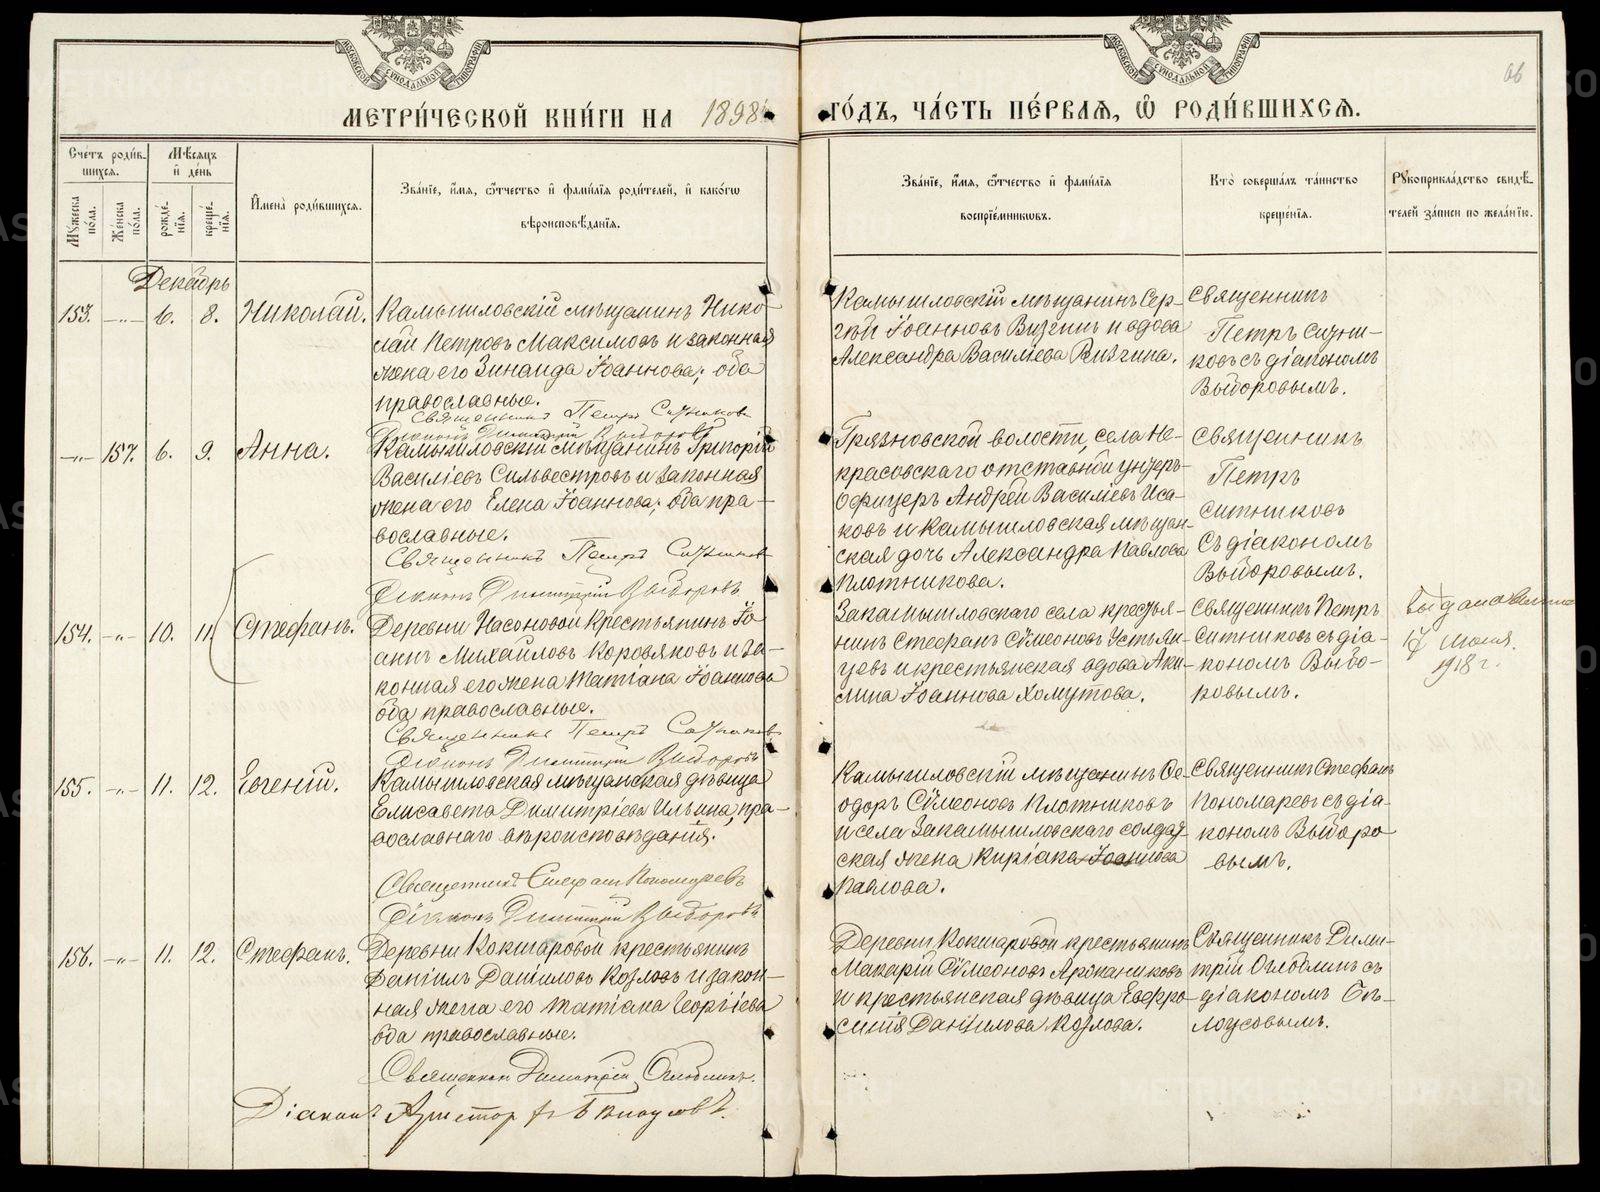 МЕТРИ́ЧЕСКОЙ КНИ́ГИ НА 1898й
ГО́ДЪ, ЧА́СТЬ ПЕ́РВАЯ, Ѡ҆ РОДИ́ВШИХСЯ.
Сче́тъ роди́в-
шихся.
Мѣ́сяцъ
и҆ де́нь
Му́жеска
по́ла.
Же́нска
по́ла.
рожде́-
нія.
креще́-
нія.
И҆мена̀ роди́вшихся.
Зва́ніе, и҆́мя, ѻ҆́тчество и҆ фами́лія роди́телей, и҆ како́гѡ
вѣроисповѣ́данія.
Зва́ніе, и҆́мя, ѻ҆́тчество и҆ фами́лія
воспріе́мниковъ.
Кто̀ соверша́лъ та́инство
креще́нія.
Рукоприкла́дство свидѣ́-
телей за́писи по жела́нію.
Декабрь
153. -„- 6. 8. Николай.
Камышловскій мѣщанинъ Нико-
лай Петровъ Максимовъ и законная
жена его Зинаида Іоаннова; оба
православные.
Священникъ Петръ Ситниковъ
Діаконъ Димитрій Выборовъ
Камышловскій мѣщанинъ Сер-
гѣй Іоанновъ Визгинъ и вдова
Александра Васильева Визгина.
Священникъ
Петръ Ситни-
ковъ съ діакономъ
Выборовымъ.
-„- 157. 6. 9. Анна.
Камышловскій мѣщанинъ Григорій
Василіевъ Сильвестровъ и законная
жена его Елена Іоаннова; оба пра-
вославные.
Священникъ Петръ Ситниковъ
Діаконъ Димитрій Выборовъ
Грязновской волости, села Не-
красовскаго отставной унтеръ-
офицеръ Андрей Васильевъ Иса-
ковъ и Камышловская мѣщан-
ская дочь Александра Павлова
Плотникова.
Священникъ
Петръ
Ситниковъ
съ діакономъ
Выборовымъ.
154. -„- 10. 11. Стефанъ.
Деревни Насоновой крестьянинъ Іо-
аннъ Михайловъ Коровяковъ и за-
конная его жена Татіана Іоаннова
оба православные.
Священникъ Петръ Ситниковъ
Діаконъ Димитрій Выборовъ
Закамышловскаго села крестья-
нинъ Стефанъ Сѵмеоновъ Устьян-
цевъ и крестьянская вдова Аки-
лина Іоаннова Хомутова.
Священникъ Петръ
Ситниковъ съ діа-
кономъ Выбо-
ровымъ.
17
1918 г.
155. -„- 11. 12. Евгеній.
Камышловская мѣщанская дѣвица
Елисавета Димитріева Ильина, пра-
вославнаго вѣроисповѣданія.
Священникъ Стефанъ Пономаревъ
Діаконъ Димитрій Выборовъ
Камышловскій мѣщанинъ Ѳе-
одоръ Сѵмеоновъ Плотниковъ
и села Закамышловскаго солдат-
ская жена Киріака Іоаннова
Павлова.
Священникъ Стефанъ
Пономаревъ съ діа-
кономъ Выборо-
вымъ.
156. -„- 11. 12. Стефанъ.
Деревни Кокшаровой крестьянинъ
Даніилъ Даніиловъ Козловъ и закон-
ная жена его Татіана Георгіева
оба православные.
Священникъ Димитрій Оглоблинъ.
Діаконъ
Деревни Кокшаровой крестьянинъ
Макарій Сѵмеоновъ
и крестьянская дѣвица Евфро-
синія Даніилова Козлова.
Священникъ Дими-
трій Оглоблинъ съ
діакономъ Бѣ-
лоусовымъ.